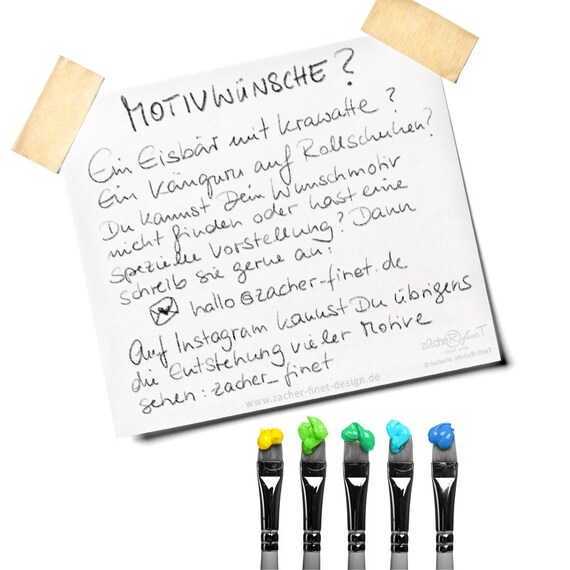 MOTIVWÜNSCHE?
Ein Eisbär mit Krawatte?
Ein Känguru auf Rollschuhen?
Du kannst Dein Wunschmotiv
nicht finden oder hast eine
spezielle Vorstellung? Dann
schreib sie gerne an:
hallo@zacher-finet.de
Auf Instagram kannst Du übrigens
die Entstehung vieler Motive
sehen: zacher_finet
zacheR fineT
© Isabelle zácheR.fineT
www.zacher-finet-design.de